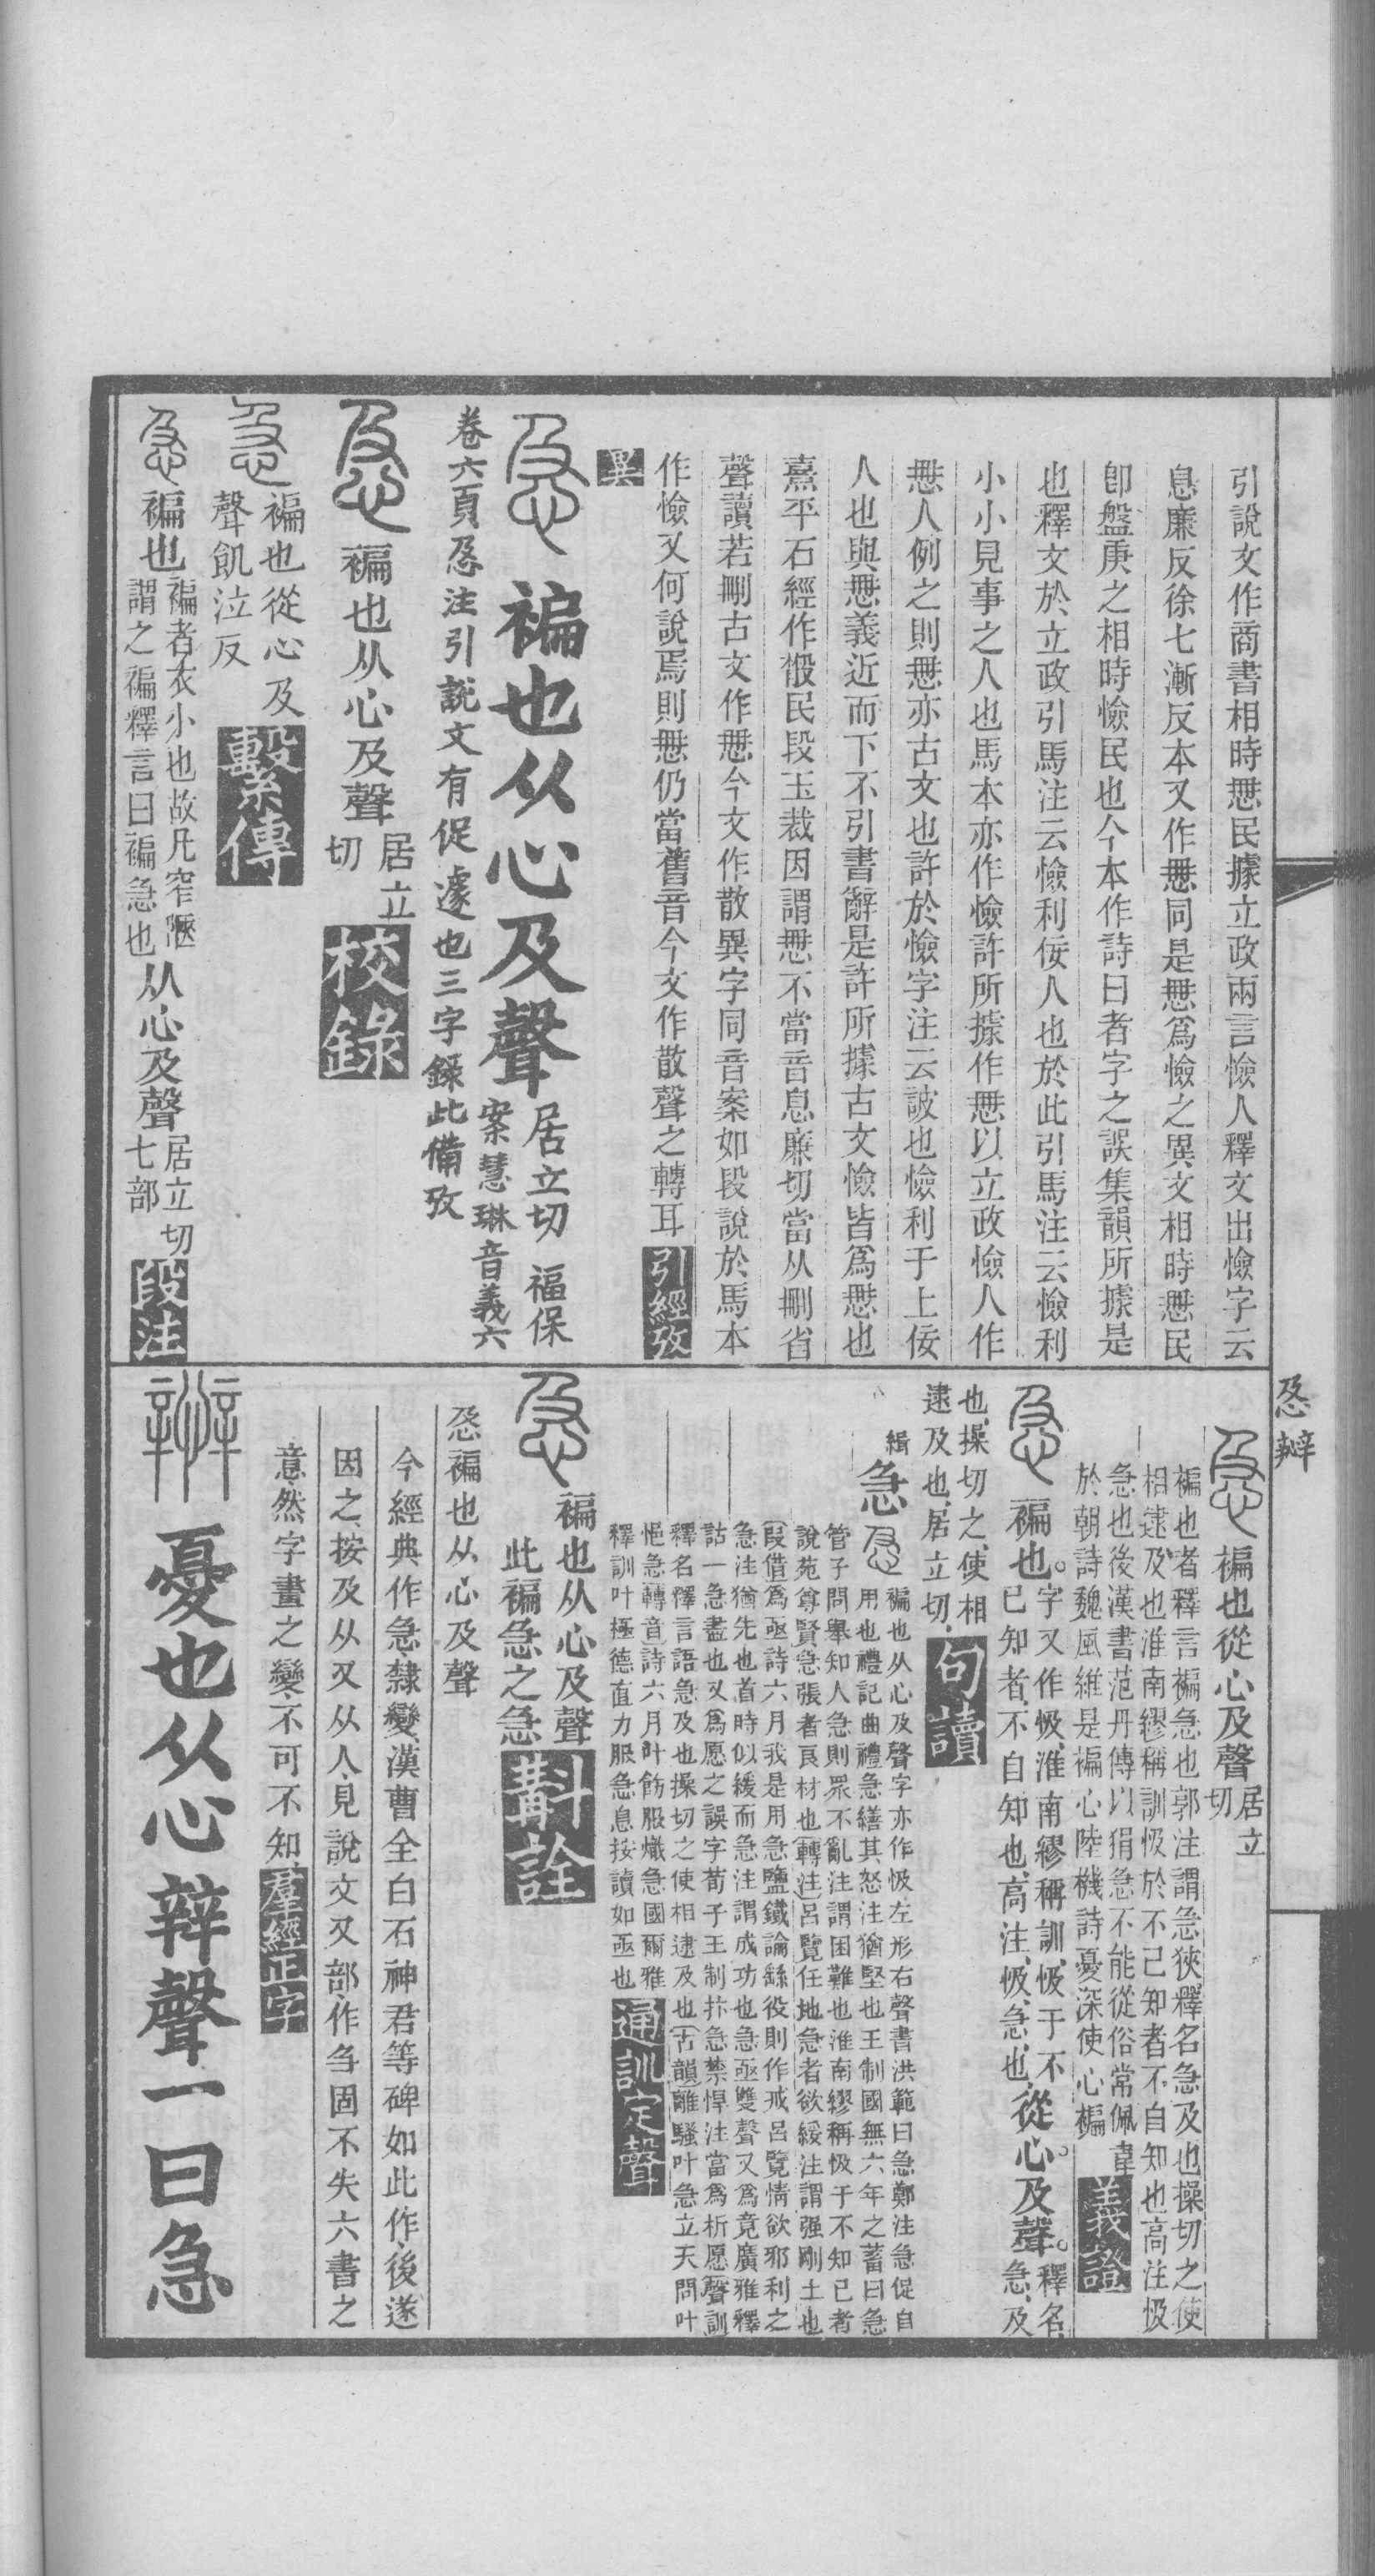 引說文作商書相時思民據立政兩言憸人釋文出憸字云
息廉反徐七漸反本又作𢘑同是𢘑爲憸之異文相時𢘑民
卽盤庚之相時憸民也今本作詩曰者字之誤集韻所據是
也釋文於立政引馬注云憸利佞人也於此引馬注云憸利
小小見事之人也馬本亦作憸許所據作𢘑以立政憸人作
𢘑人例之則𢘑亦古文也許於憸字注云詖也憸利于上佞
人也與𢘑義近而下不引書辭是許所據古文憸皆爲𢘑也
熹平石經作散民段玉裁因謂𢘑不當音息廉切當从刪省
聲讀若刪古文作𢘑今文作散異字同音案如段說於馬本
作憸又何說焉則𢘑仍當舊音今文作散聲之轉耳引經攷
異
褊也从心及聲居立切 福保
案慧琳音義六
卷六頁㤂注引說文有促遽也三字錄此備攷
褊也从心及聲居立
切校錄
褊也從心及
聲飢泣反繫傳
褊也褊者衣小也故凡窄陿
謂之褊釋言曰褊急也从心及聲居立切
七部段注
㤂辯
褊也從心及聲居立
切
褊也者釋言褊急也郭注謂急狹釋名急及也操切之使
相逮及也淮南繆稱訓忣於不己知者不自知也高注忣
急也後漢書范丹傳以狷急不能從俗常佩韋
於朝詩魏風維是褊心陸機詩憂深使心褊義證
褊也。字又作忣、淮南繆稱訓、忣于不
已知者、不自知也、高注、忣、急也、從心。及聲。釋名、
急、及
也、操切之、使相
逮及也、居立切、句讀
緝
急 褊也从心及聲字亦作忣左形右聲書洪範曰急鄭注急促自
用也禮記曲禮急繕其怒注猶堅也王制國無六年之蓄曰急
管子問舉知人急則眾不亂注謂困難也淮南繆稱忣于不知己者
說苑尊賢急張者良材也轉注呂覽任地急者欲緩注謂强剛土也
叚借爲亟詩六月我是用急鹽鐵論繇役則作戒呂覽情欲邪利之
急注猶先也首時似緩而急注謂成功也急亟雙聲又爲竟廣雅釋
詁一急盡也又爲愿之誤字荀子王制抃急禁悍注當爲析愿聲訓
釋名釋言語急及也操切之使相逮及也古韻離騷叶急立天問叶
悒急轉音詩六月叶飭服熾急國爾雅
釋訓叶極德直力服急息按讀如亟也通訓定聲
褊也从心及聲
此褊急之急斠詮
㤂褊也从心及聲
今經典作急、隸變、漢曹全白石神君等碑如此作、後遂
因之、按及从又从人、見說文又部、作刍固不失六書之
意、然字畫之變、不可不知、羣經正字
憂也从心辡聲一曰急